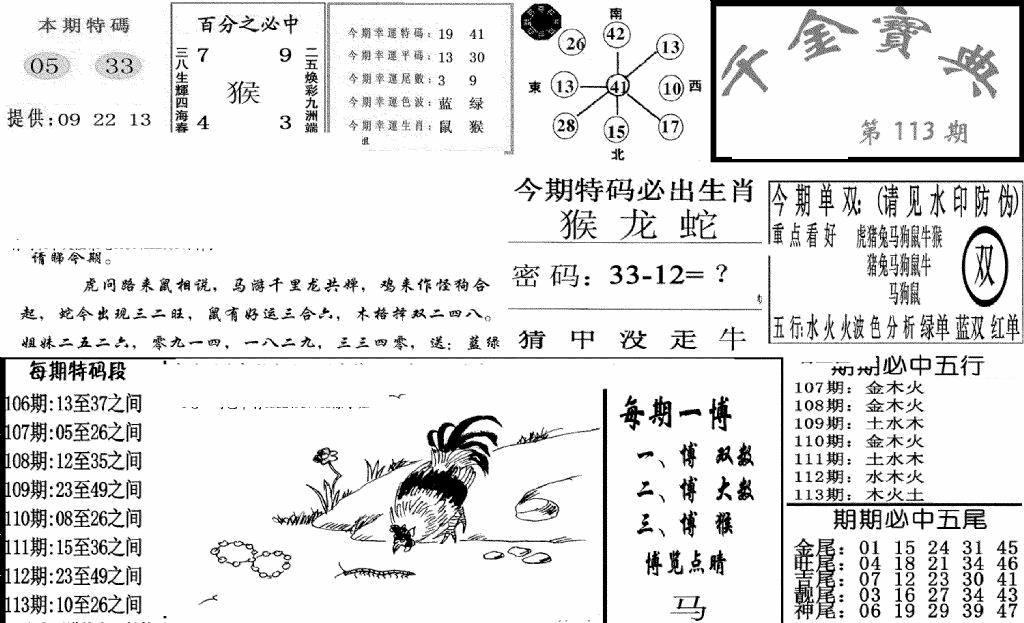 本期特碼
05 33
提供:09 22 13
百分之必中
三八生輝四海春
7 9
猴
4 3
二五焕彩九洲端
今期幸運特碼: 19 41
今期幸運平碼: 13 30
今期幸運尾數: 3 9
今期幸運色波: 蓝 绿
今期幸運生肖: 鼠 猴
南
26 42 13
東 13 41 10 西
28 15 17
北
千金寶典
第 113 期
请睇今期。
虎问路来鼠相说，马游千里龙共婵，鸡来作怪狗合
起，蛇今出现三二旺，鼠有好运三合六，木格择双二四八。
姐妹二五二六，零九一四，一八二九，三三四零，送：蓝绿
今期特码必出生肖
猴 龙 蛇
密码: 33-12=？
猜甲没走牛
今期单双:(请见水印防伪)
重点看好 虎猪兔马狗鼠牛猴
猪兔马狗鼠牛
马狗鼠
双
五行:水火火波色分析绿单蓝双红单
每期特码段
106期:13至37之间
107期:05至26之间
108期:12至35之间
109期:23至49之间
110期:08至26之间
111期:15至36之间
112期:23至49之间
113期:10至26之间
每期一博
一、博 双数
二、博 大数
三、博 猴
博览点睛
马
期期必中五行
107期: 金木火
108期: 金木火
109期: 土水木
110期: 金木火
111期: 土水木
112期: 水木火
113期: 木火土
期期必中五尾
金尾: 01 15 24 31 45
旺尾: 04 18 21 34 46
吉尾: 07 12 23 30 41
靓尾: 03 16 27 34 43
神尾: 06 19 29 39 47